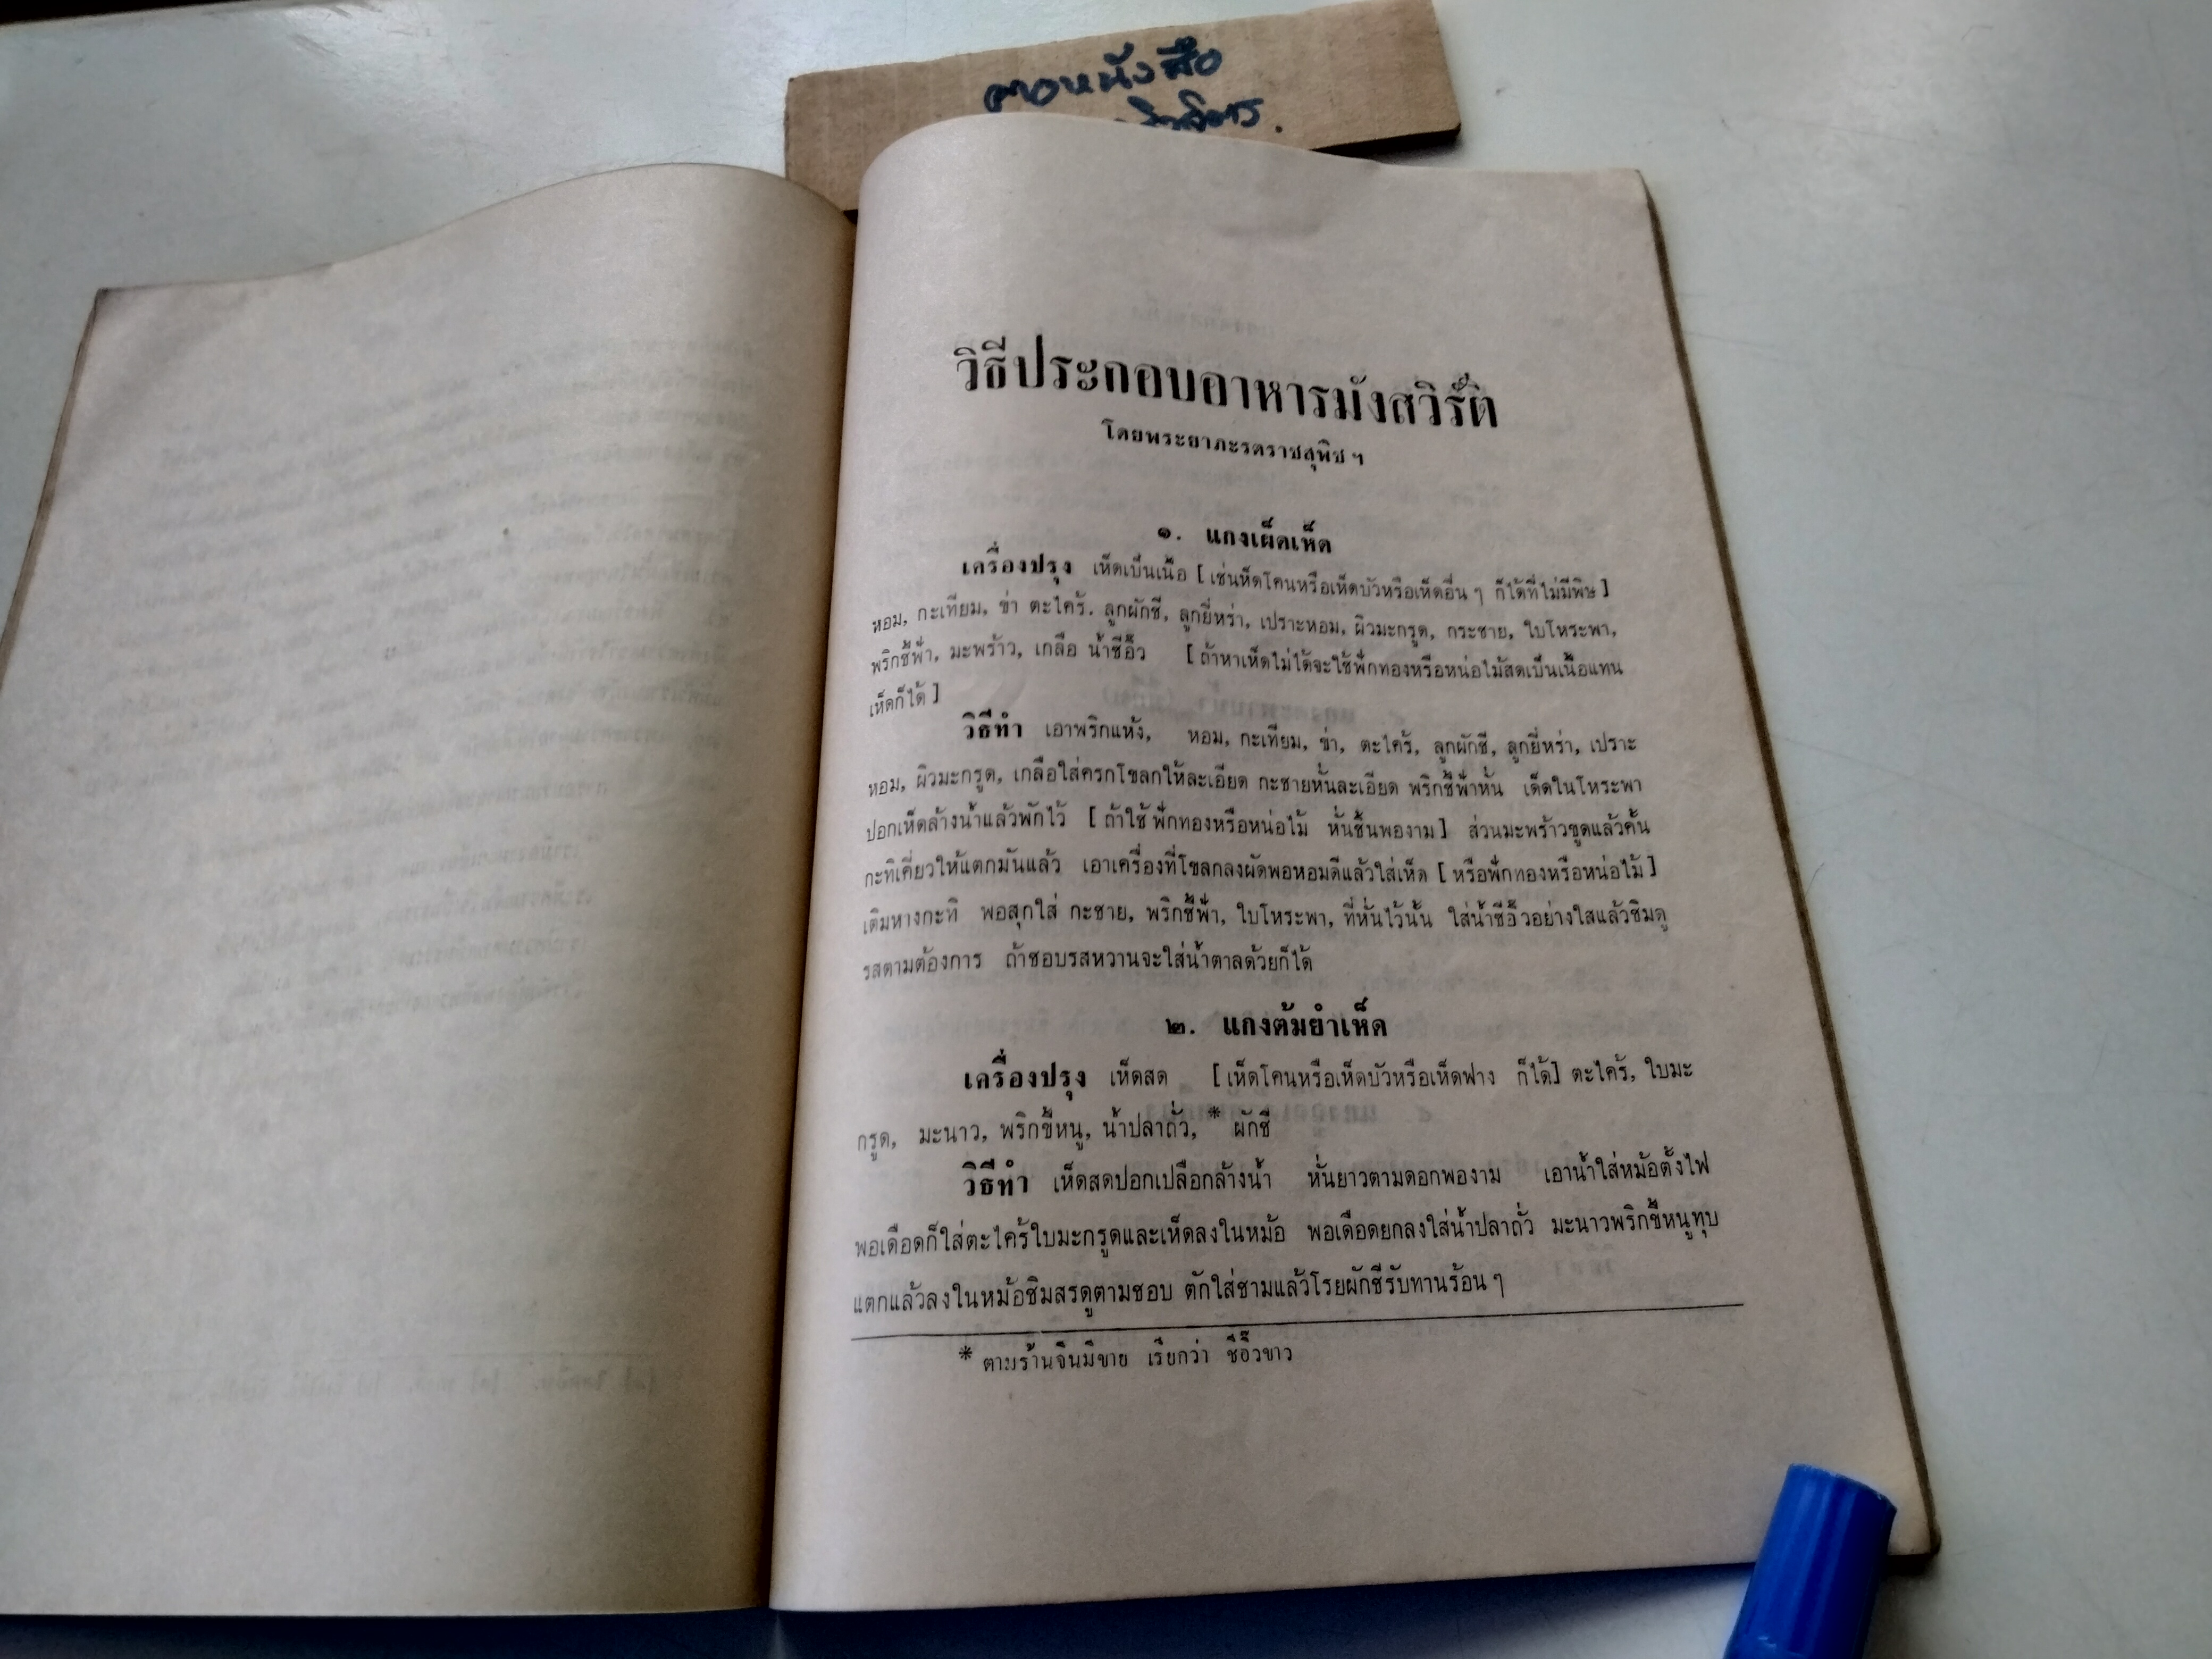 ตอหนังสือ
วิธีประกอบอาหารมังสวิรัติ
โดยพระยาภะรตราชสุพิช ฯ
๑. แกงเผ็ดเห็ด
เครื่องปรุง เห็ดเป็นเนื้อ [ เช่นห็ดโคนหรือเห็ดบัวหรือเห็ดอื่น ๆ ก็ได้ที่ไม่มีพิษ ]
หอม, กะเทียม, ข่า ตะไคร้. ลูกผักชี, ลูกยี่หร่า, เปราะหอม, ผิวมะกรูด, กระชาย, ใบโหระพา,
พริกชี้ฟ้า, มะพร้าว, เกลือ น้ำซีอิ๊ว [ ถ้าหาเห็ดไม่ได้จะใช้ฟักทองหรือหน่อไม้สดเป็นเนื้อแทน
เห็ดก็ได้ ]
วิธีทำ เอาพริกแห้ง, หอม, กะเทียม, ข่า, ตะไคร้, ลูกผักชี, ลูกยี่หร่า, เปราะ
หอม, ผิวมะกรูด, เกลือใส่ครกโขลกให้ละเอียด กะชายหั่นละเอียด พริกชี้ฟ้าหั่น เด็ดใบโหระพา
ปอกเห็ดล้างน้ำแล้วพักไว้ [ ถ้าใช้ฟักทองหรือหน่อไม้ หั่นชิ้นพองาม ] ส่วนมะพร้าวขูดแล้วคั้น
กะทิเคี่ยวให้แตกมันแล้ว เอาเครื่องที่โขลกลงผัดพอหอมดีแล้วใส่เห็ด [ หรือฟักทองหรือหน่อไม้ ]
เติมหางกะทิ พอสุกใส่ กะชาย, พริกชี้ฟ้า, ใบโหระพา, ที่หั่นไว้นั้น ใส่น้ำซีอิ๊วอย่างใสแล้วชิมดู
รสตามต้องการ ถ้าชอบรสหวานจะใส่น้ำตาลด้วยก็ได้
๒. แกงต้มยำเห็ด
เครื่องปรุง เห็ดสด [ เห็ดโคนหรือเห็ดบัวหรือเห็ดฟาง ก็ได้] ตะไคร้, ใบมะ
กรูด, มะนาว, พริกขี้หนู, น้ำปลาถั่ว, * ผักชี
วิธีทำ เห็ดสดปอกเปลือกล้างน้ำ หั่นยาวตามดอกพองาม เอาน้ำใส่หม้อตั้งไฟ
พอเดือดก็ใส่ตะไคร้ใบมะกรูดและเห็ดลงในหม้อ พอเดือดยกลงใส่น้ำปลาถั่ว มะนาวพริกขี้หนูทุบ
แตกแล้วลงในหม้อชิมสรดูตามชอบ ตักใส่ชามแล้วโรยผักชีรับทานร้อน ๆ
* ตามร้านจีนมีขาย เรียกว่า ซีอิ๊วขาว